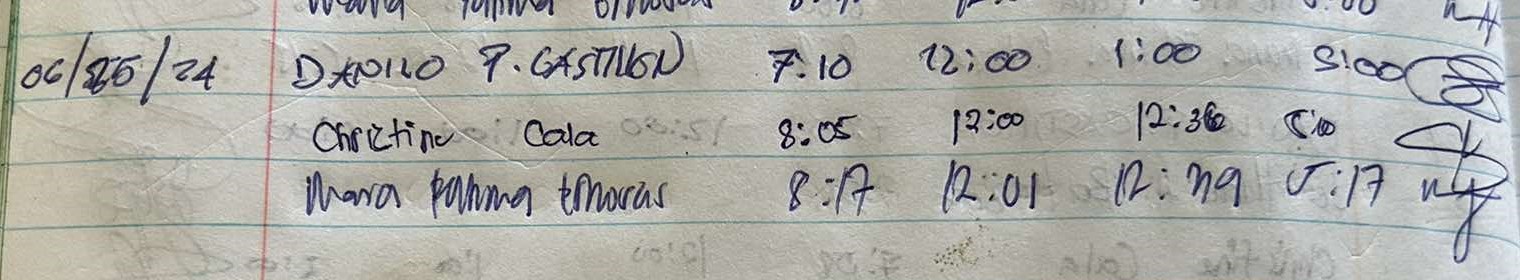 06/25/24 DANILO P. CASTILLON 7:10 12:00 1:00 5:00
Christine Cala 8:05 12:00 12:36 5:10
Mara 8:17 12:01 12:39 5:17